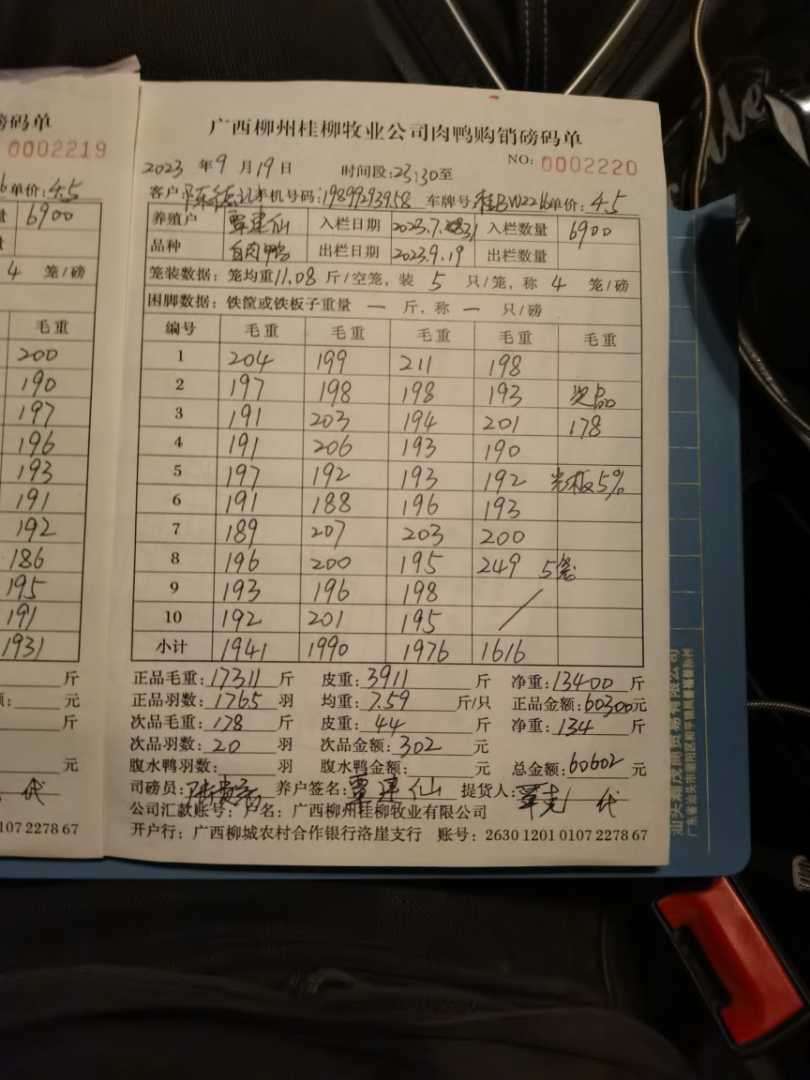 磅码单
0002219
单价: 4.5
6900
4 笼/磅
毛重
200
190
197
196
193
191
192
186
195
191
1931
斤
元
斤
元
代
0107 2278 67
广西柳州桂柳牧业公司肉鸭购销磅码单
NO: 0002220
2023 年 9 月 19 日 时间段: 23:30至
客户: 手机号码: 19899293958 车牌号: 桂BW2216 单价: 4.5
养殖户 覃建仙 入栏日期 2023.7.31 入栏数量 6900
品种 白肉鸭 出栏日期 2023.9.19 出栏数量
笼装数据: 笼均重 11.08 斤/空笼, 装 5 只/笼, 称 4 笼/磅
困脚数据: 铁筐或铁板子重量 一 斤, 称 一 只/磅
编号 毛重 毛重 毛重 毛重 毛重
1 204 199 211 198
2 197 198 198 193 次品
3 191 203 194 201 178
4 191 206 193 190
5 197 192 193 192 光板5%
6 191 188 196 193
7 189 207 203 200
8 196 200 195 249 5笼
9 193 196 198
10 192 201 195 /
小计 1941 1990 1976 1616
正品毛重: 17311 斤 皮重: 3911 斤 净重: 13400 斤
正品羽数: 1765 羽 均重: 7.59 斤/只 正品金额: 60300 元
次品毛重: 178 斤 皮重: 44 斤 净重: 134 斤
次品羽数: 20 羽 次品金额: 302 元
腹水鸭羽数: 羽 腹水鸭金额: 元 总金额: 60602 元
司磅员: 养户签名: 覃建仙 提货人: 代
公司汇款账号: 户名: 广西柳州桂柳牧业有限公司
开户行: 广西柳城农村合作银行洛崖支行 账号: 2630 1201 0107 2278 67